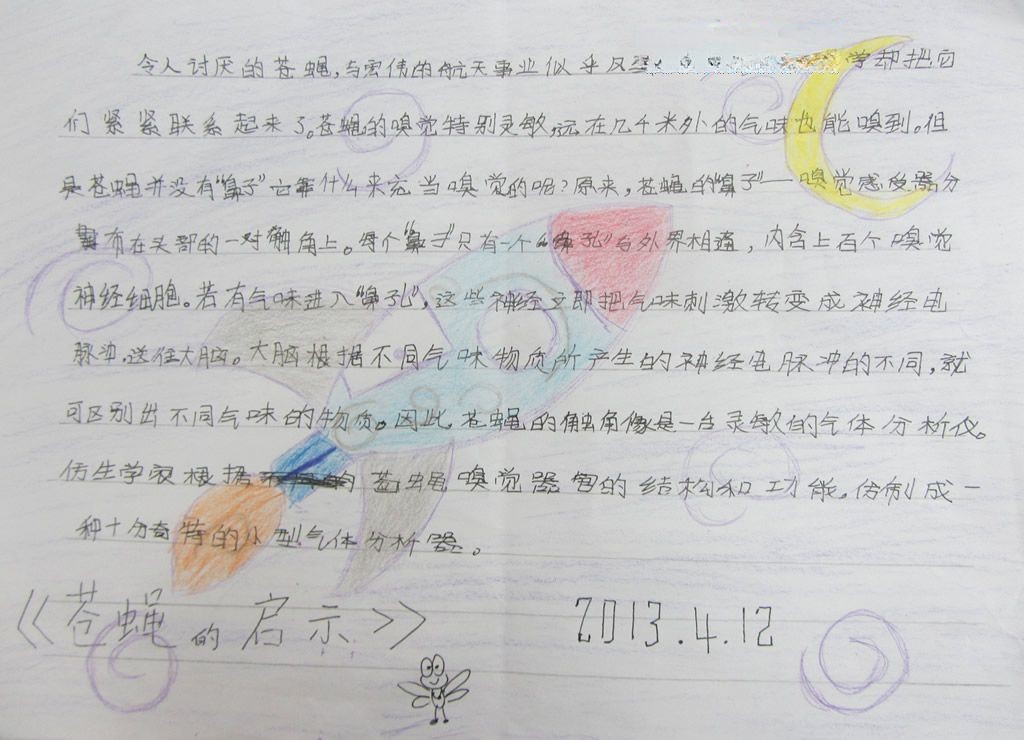 令人讨厌的苍蝇,与宏伟的航天事业似乎风 学却把它
们紧紧联系起来了。苍蝇的嗅觉特别灵敏,远在几千米外的气味也能嗅到。但
是苍蝇并没有“鼻子”它靠什么来充当嗅觉的呢?原来,苍蝇的“鼻子”——嗅觉感受器分
布在头部的一对触角上。每个“鼻子”只有一个“鼻孔”与外界相通,内含上百个嗅觉
神经细胞。若有气味进入“鼻孔”,这些神经立即把气味刺激转变成神经电
脉冲,送往大脑。大脑根据不同气味物质所产生的神经电脉冲的不同,就
可区别出不同气味的物质。因此,苍蝇的触角像是一台灵敏的气体分析仪。
仿生学家根据苍蝇嗅觉器官的结构和功能。仿制成一
种十分奇特的小型气体分析器。
《苍蝇的启示》 2013.4.12